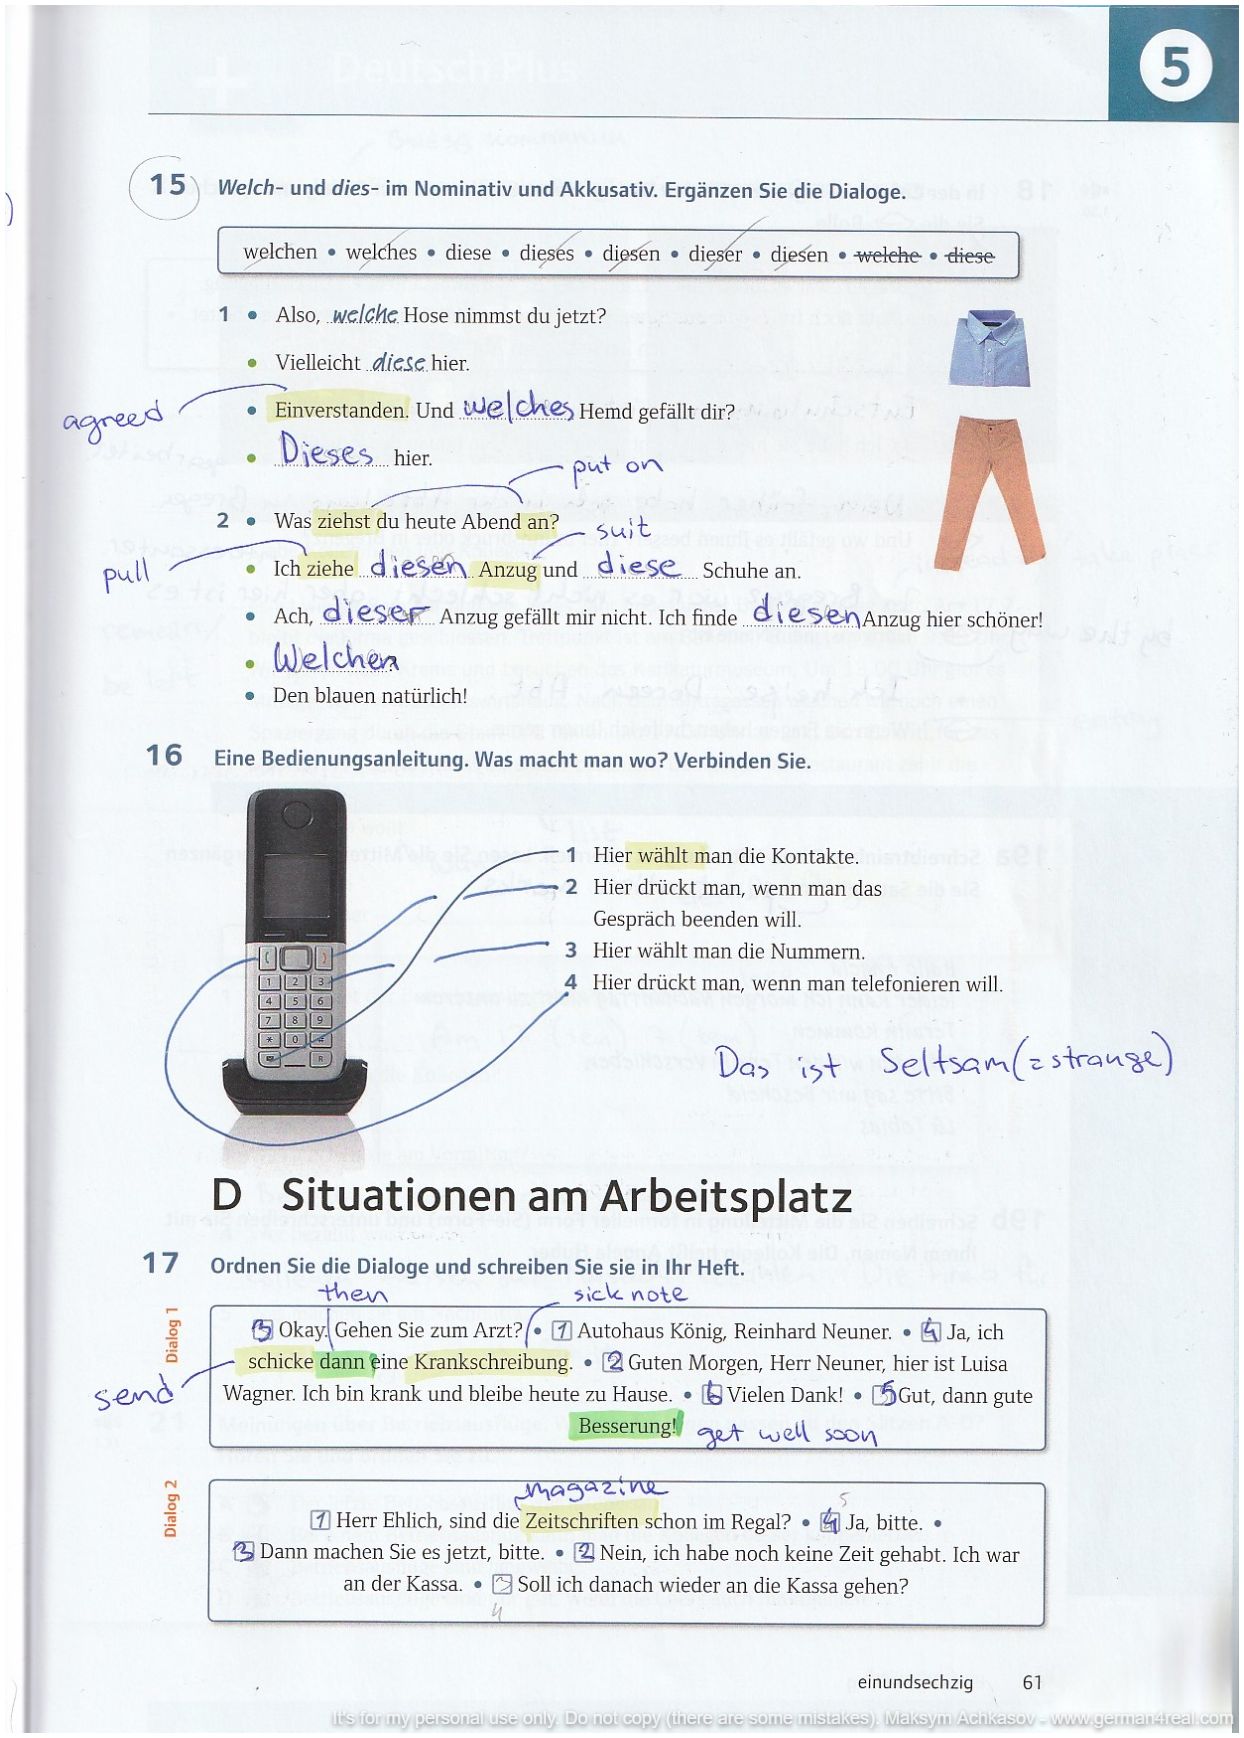 5
15 Welch- und dies- im Nominativ und Akkusativ. Ergänzen Sie die Dialoge.
welchen • welches • diese • dieses • diesen • dieser • diesen • welche • diese
1 • Also, welche Hose nimmst du jetzt?
• Vielleicht diese hier.
agreed
• Einverstanden. Und welches Hemd gefällt dir?
• Dieses hier.
put on
2 • Was ziehst du heute Abend an?
suit
pull
• Ich ziehe diesen Anzug und diese Schuhe an.
• Ach, dieser Anzug gefällt mir nicht. Ich finde diesen Anzug hier schöner!
• Welchen?
• Den blauen natürlich!
16 Eine Bedienungsanleitung. Was macht man wo? Verbinden Sie.
1 Hier wählt man die Kontakte.
2 Hier drückt man, wenn man das
Gespräch beenden will.
3 Hier wählt man die Nummern.
4 Hier drückt man, wenn man telefonieren will.
1 2 3
4 5 6
7 8 9
* 0 #
R
Das ist Seltsam (= strange)
D Situationen am Arbeitsplatz
17 Ordnen Sie die Dialoge und schreiben Sie sie in Ihr Heft.
then
sick note
Dialog 1
3 Okay. Gehen Sie zum Arzt? • 1 Autohaus König, Reinhard Neuner. • 4 Ja, ich
schicke dann eine Krankschreibung. • 2 Guten Morgen, Herr Neuner, hier ist Luisa
send
Wagner. Ich bin krank und bleibe heute zu Hause. • 6 Vielen Dank! • 5 Gut, dann gute
Besserung! get well soon
Dialog 2
magazine
5
1 Herr Ehlich, sind die Zeitschriften schon im Regal? • 4 Ja, bitte. •
3 Dann machen Sie es jetzt, bitte. • 2 Nein, ich habe noch keine Zeit gehabt. Ich war
an der Kassa. • 3 Soll ich danach wieder an die Kassa gehen?
4
einundsechzig 61
It's for my personal use only. Do not copy (there are some mistakes). Maksym Achkasov - www.german4real.com